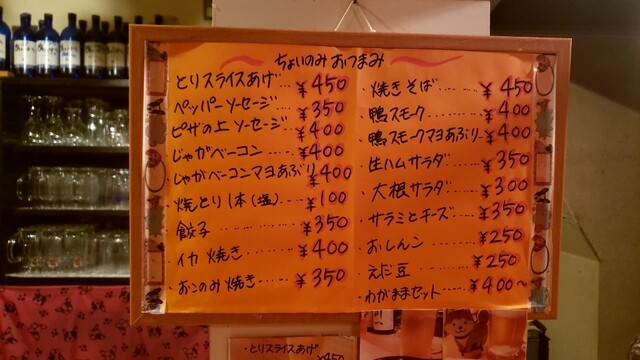 ちょいのみ おつまみ
・とりスライスあげ… ¥450
・ペッパーソーセージ… ¥350
・ピザの上ソーセージ… ¥400
・じゃがベーコン ¥400
・じゃがベーコンマヨあぶり ¥400
・焼とり1本(塩) ¥100
・餃子 ¥350
・イカ焼き ¥400
・おこのみ焼き ¥350
・焼きそば ¥450
・鴨スモーク ¥400
・鴨スモークマヨあぶり ¥400
・生ハムサラダ ¥350
・大根サラダ ¥300
・サラミとチーズ ¥350
・おしんこ ¥250
・えだ豆 ¥250
・わがままセット ¥400〜
・とりスライスあげ
¥450